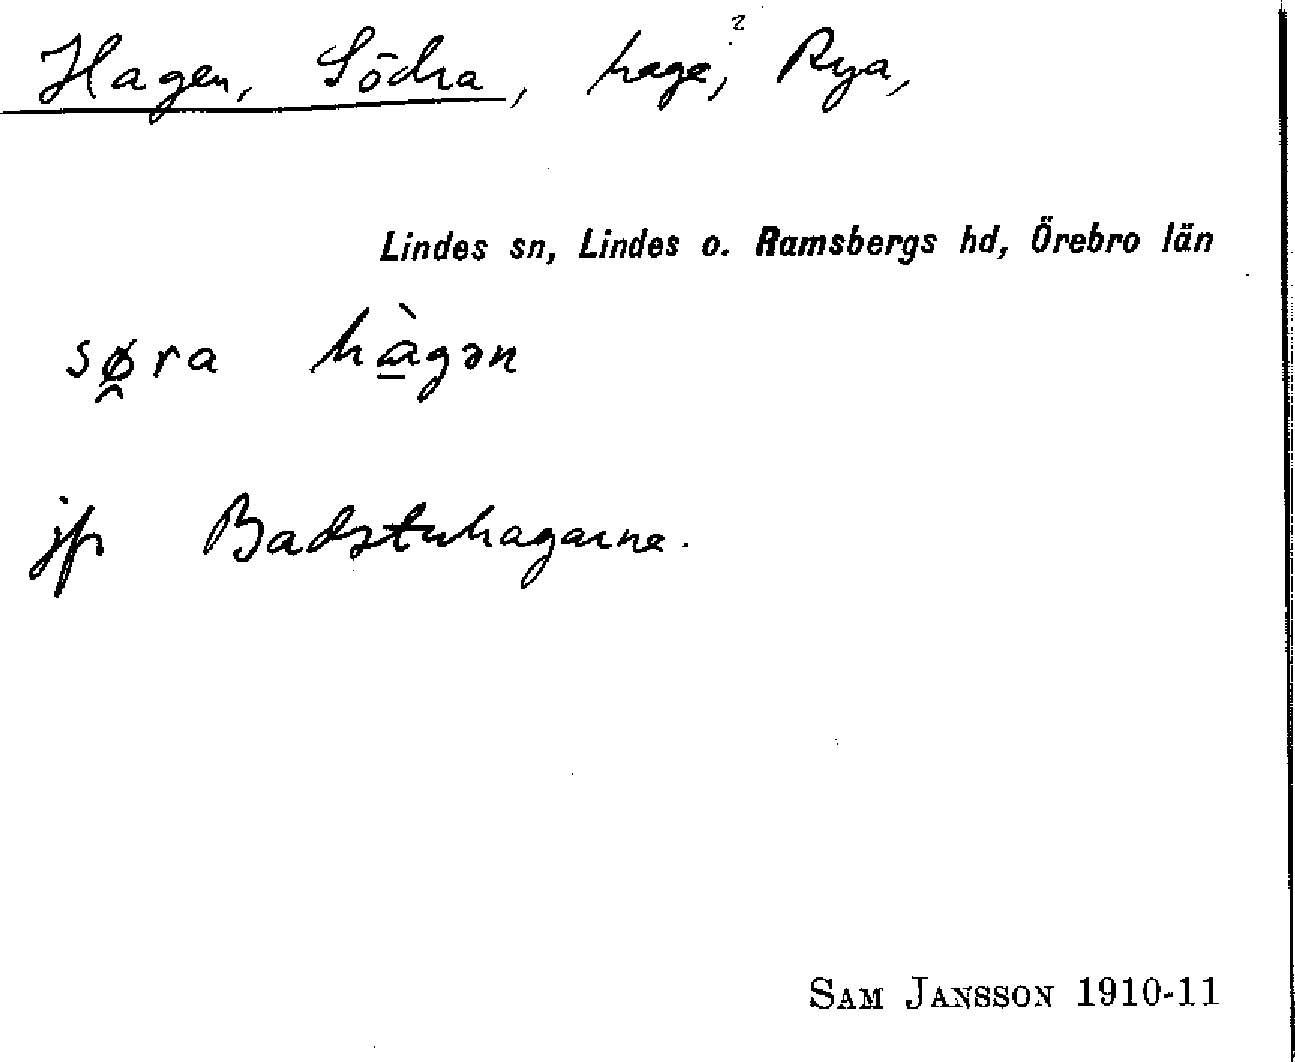 Hagen, Södra, hage,² Rya,
Lindes sn, Lindes o. Ramsbergs hd, Örebro län
sø̯̂ra hà̱gən
jfr Badstuhagarna.
SAM JANSSON 1910-11